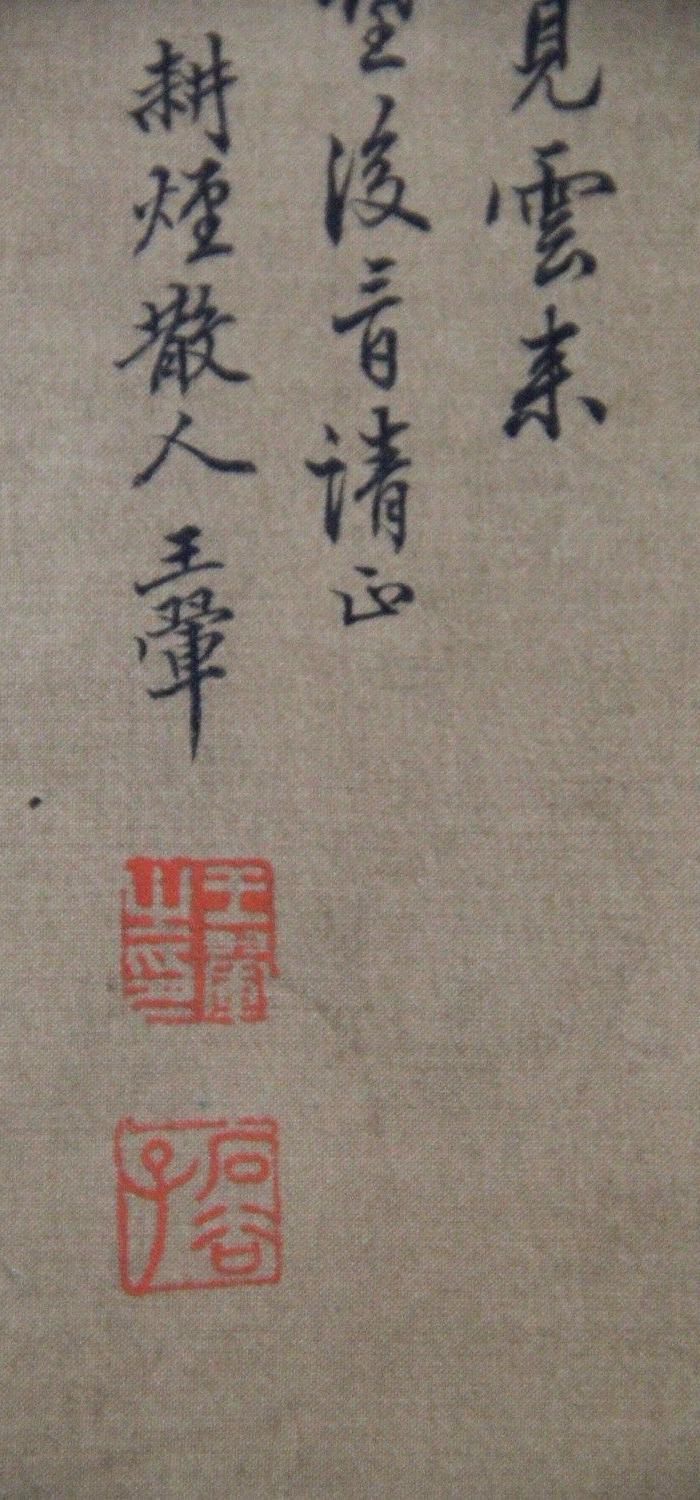 見雲来
後音請正
耕煙散人王翬
王翬之印
石谷子